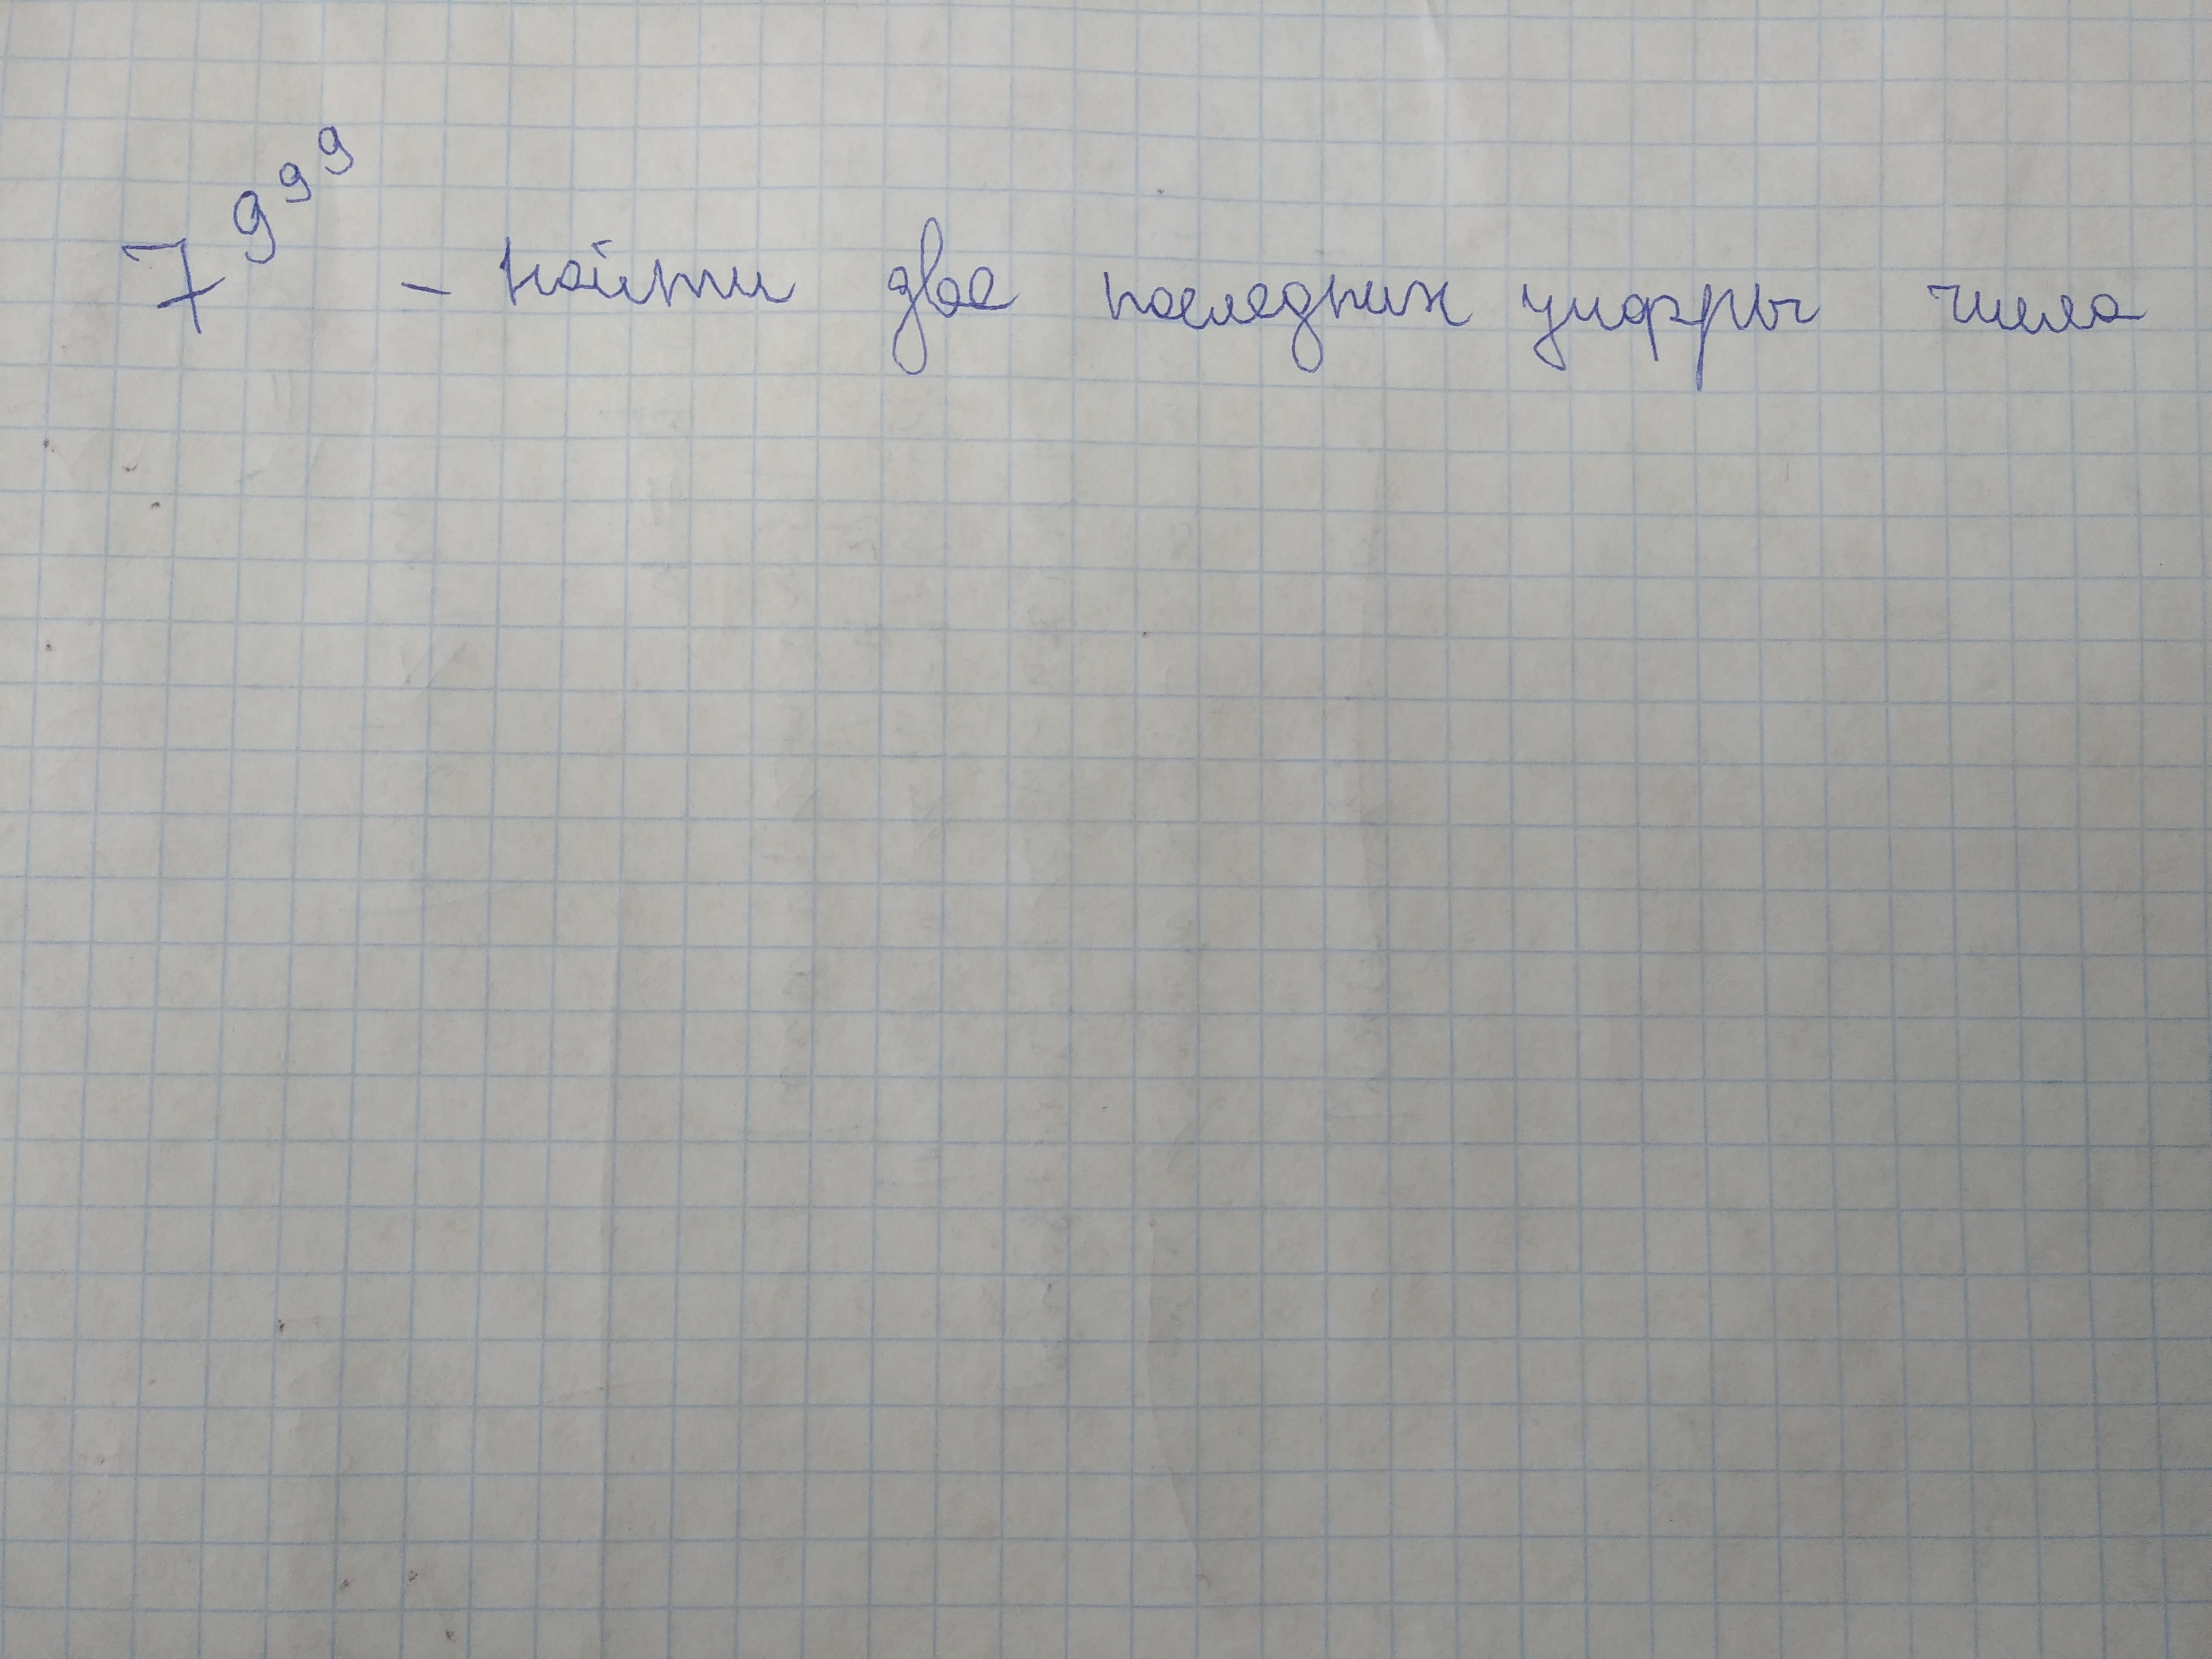 7^9^9^9 - найти две последних цифры числа